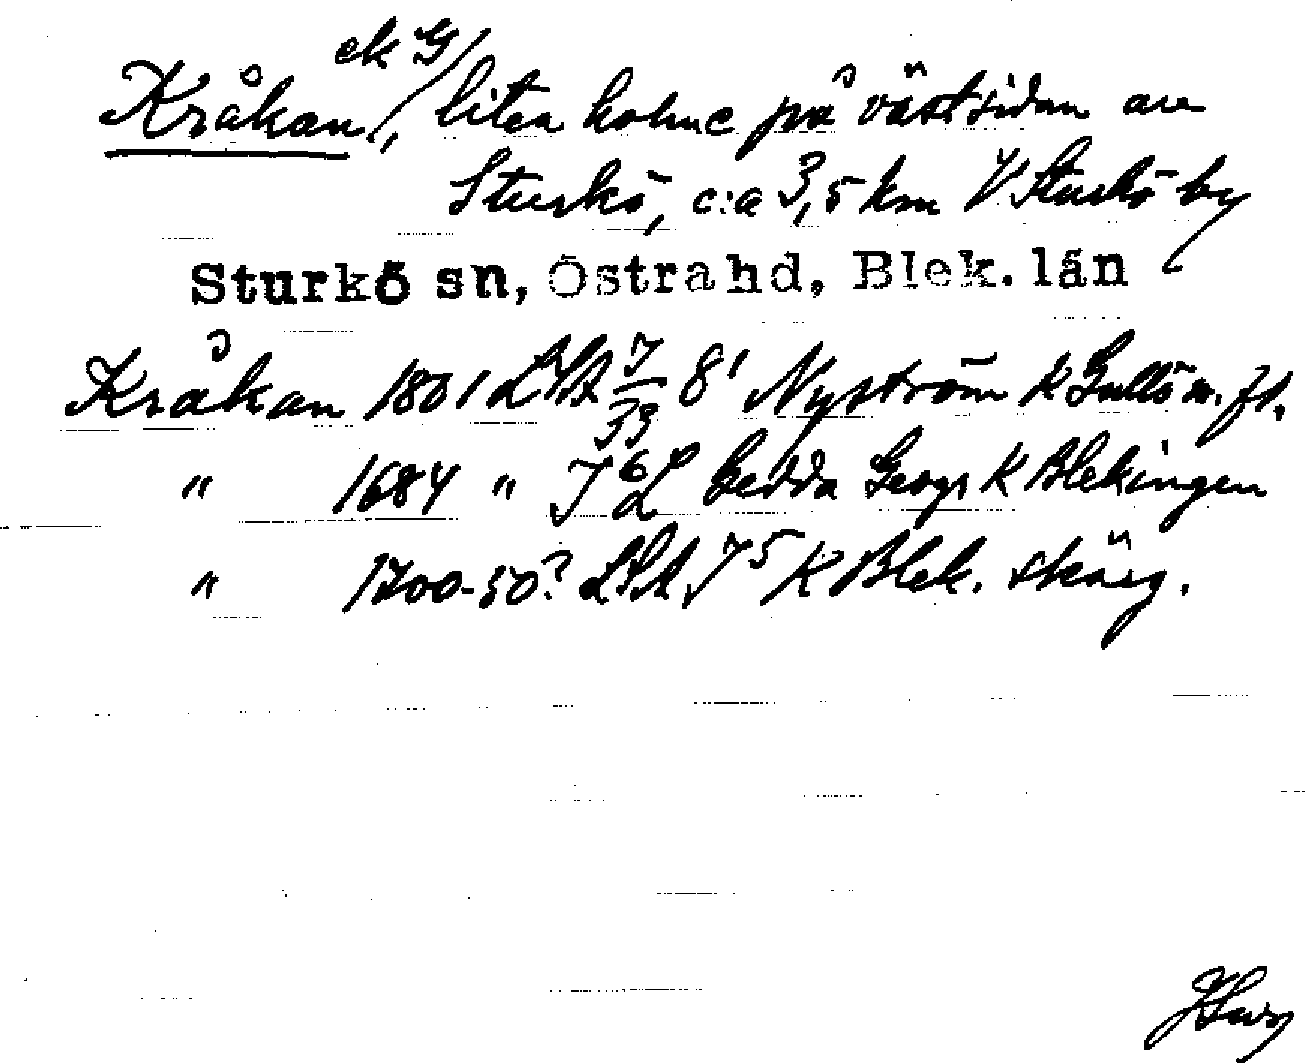 ek G
Kråkan, liten holme på västsidan av
Sturkö, c:a 3,5 km V Sturkö by
Sturkö sn, Östra hd, Blek. län
Kråkan 1801 LSA J/33 8¹ Nyström K Gullö m. fl.
" 1684 " J⁶L Gedda Geogr K Blekingen
" 1700-50? LSA J⁵ K Blek. skärg.